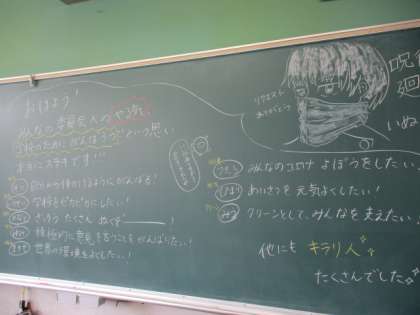 おはよう!
みんなの委員会のやる気
学校のためにがんばろうという思い
本当にステキです!!
自分から動けるようにがんばる!
学校をピカピカにしたい!
ざっそう たくさん ぬくぞ――!
積極的に意見を言うことをがんばりたい!
世界の環境をよくしたい!
リクエスト
ありがとう♡
呪
廻
いぬ
みんなのコロナ よぼうをしたい。
あいさつを 元気よくしたい!
クリーンとして、みんなを支えたい!
他にも キラリ人
たくさんでした